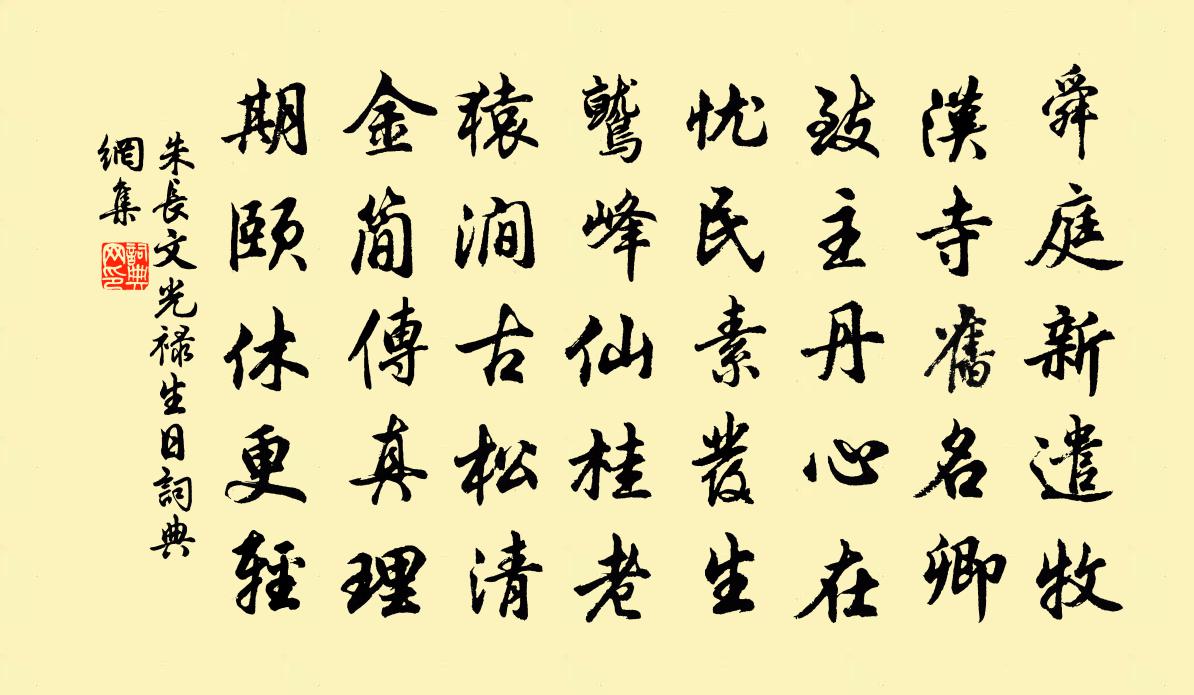 舜庭新遣牧
漢寺舊名卿
致主丹心在
忧民素發生
鷲峰仙桂老
猿澗古松清
金简傳真理
期颐休更輕
朱長文光禄生日詞典
網集
詞典
网印